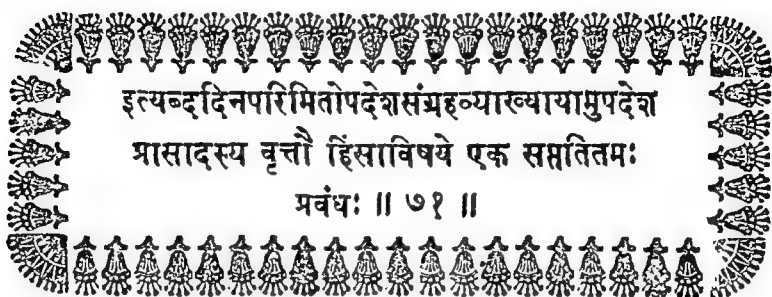 इत्यब्ददिनपरिमितोपदेशसंग्रहव्याख्यायामुपदेश
प्रासादस्य वृत्तौ हिंसाविषये एक सप्ततितमः
प्रबंधः ॥ ७१ ॥